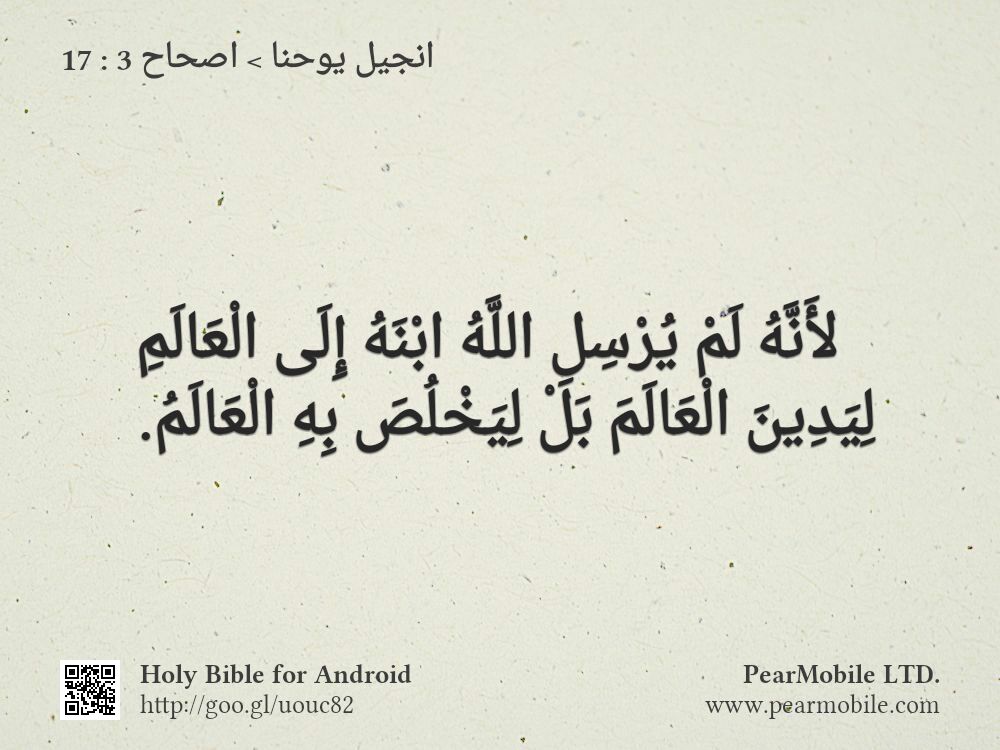 انجيل يوحنا > اصحاح 3 : 17
لأَنَّهُ لَمْ يُرْسِلِ اللَّهُ ابْنَهُ إِلَى الْعَالَمِ
لِيَدِينَ الْعَالَمَ بَلْ لِيَخْلُصَ بِهِ الْعَالَمُ.
Holy Bible for Android
http://goo.gl/uouc82
PearMobile LTD.
www.pearmobile.com